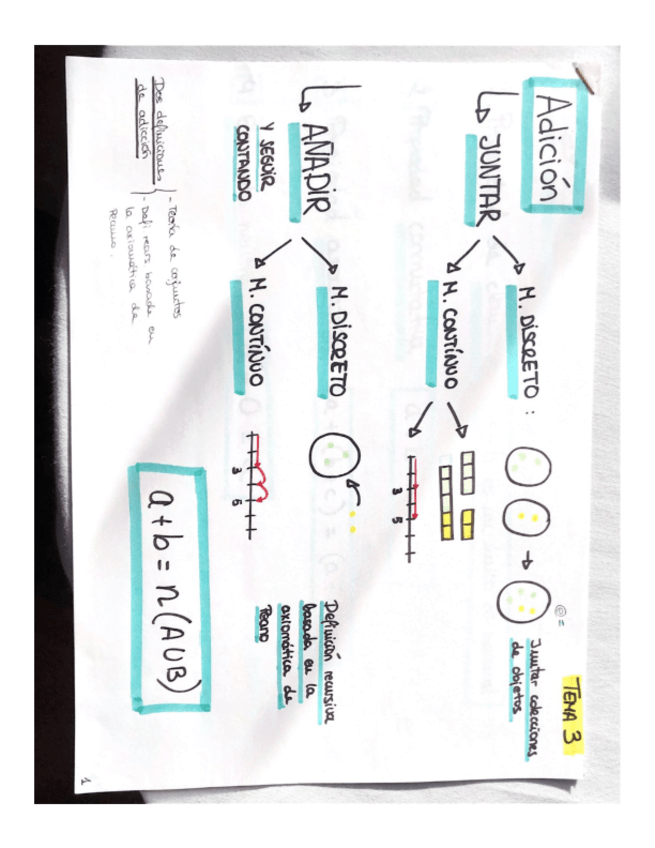 TEMA 3
Adición
↳ JUNTAR
M. DISCRETO :
Juntar colecciones
de objetos
M. CONTÍNUO
3
5
↳ AÑADIR
Y SEGUIR
CONTANDO
M. DISCRETO
M. CONTÍNUO
3
5
Definición recursiva
basada en la
axiomática de
Peano
Dos definiciones
de adicción
- Teoría de conjuntos
- Defi recurs basada en
la axiomática de
Peano.
a + b = n (A∪B)
1